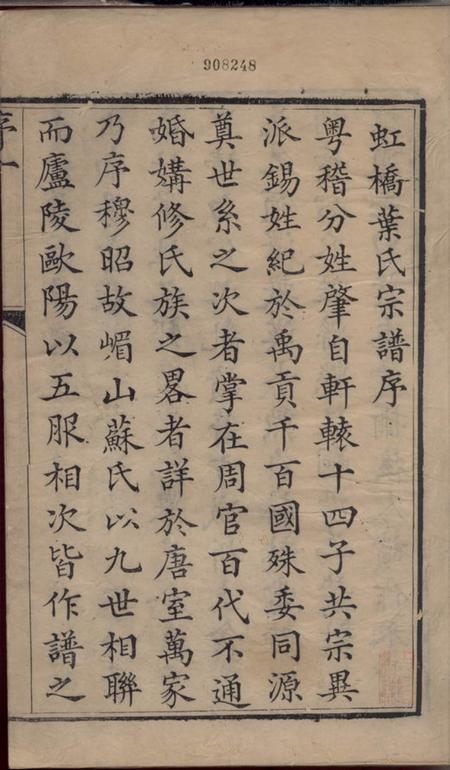 908248
虹橋葉氏宗譜序
粤稽分姓肇自軒轅十四子共宗異
派錫姓紀於禹貢千百國殊委同源
奠世系之次者掌在周官百代不通
婚媾修氏族之畧者詳於唐室萬家
乃序穆昭故嵋山蘇氏以九世相聯
而廬陵歐陽以五服相次皆作譜之
序一